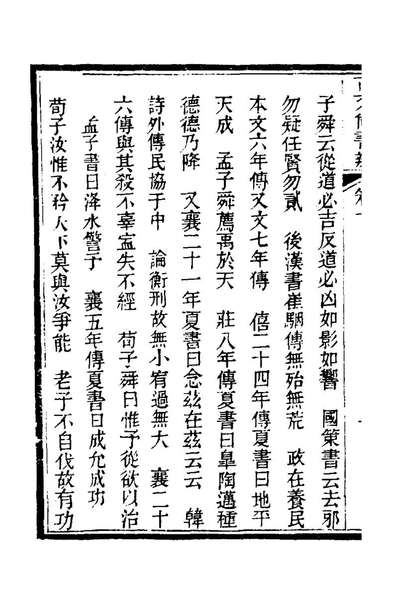 子舜云從道必吉反道必凶如影如響　國策書云去邪
勿疑任賢勿貳　後漢書崔駰傳無殆無荒　政在養民
本文六年傳又文七年傳　僖二十四年傳夏書曰地平
天成　孟子舜薦禹於天　莊八年傳夏書曰皐陶邁種
德德乃降　又襄二十一年夏書曰念茲在茲云云　韓
詩外傳民協于中　論衡刑故無小宥過無大　襄二十
六傳與其殺不辜寍失不經　荀子舜曰惟予從欲以治
孟子書曰洚水警予　襄五年傳夏書曰成允成功
荀子汝惟不矜天下莫與汝爭能　老子不自伐故有功